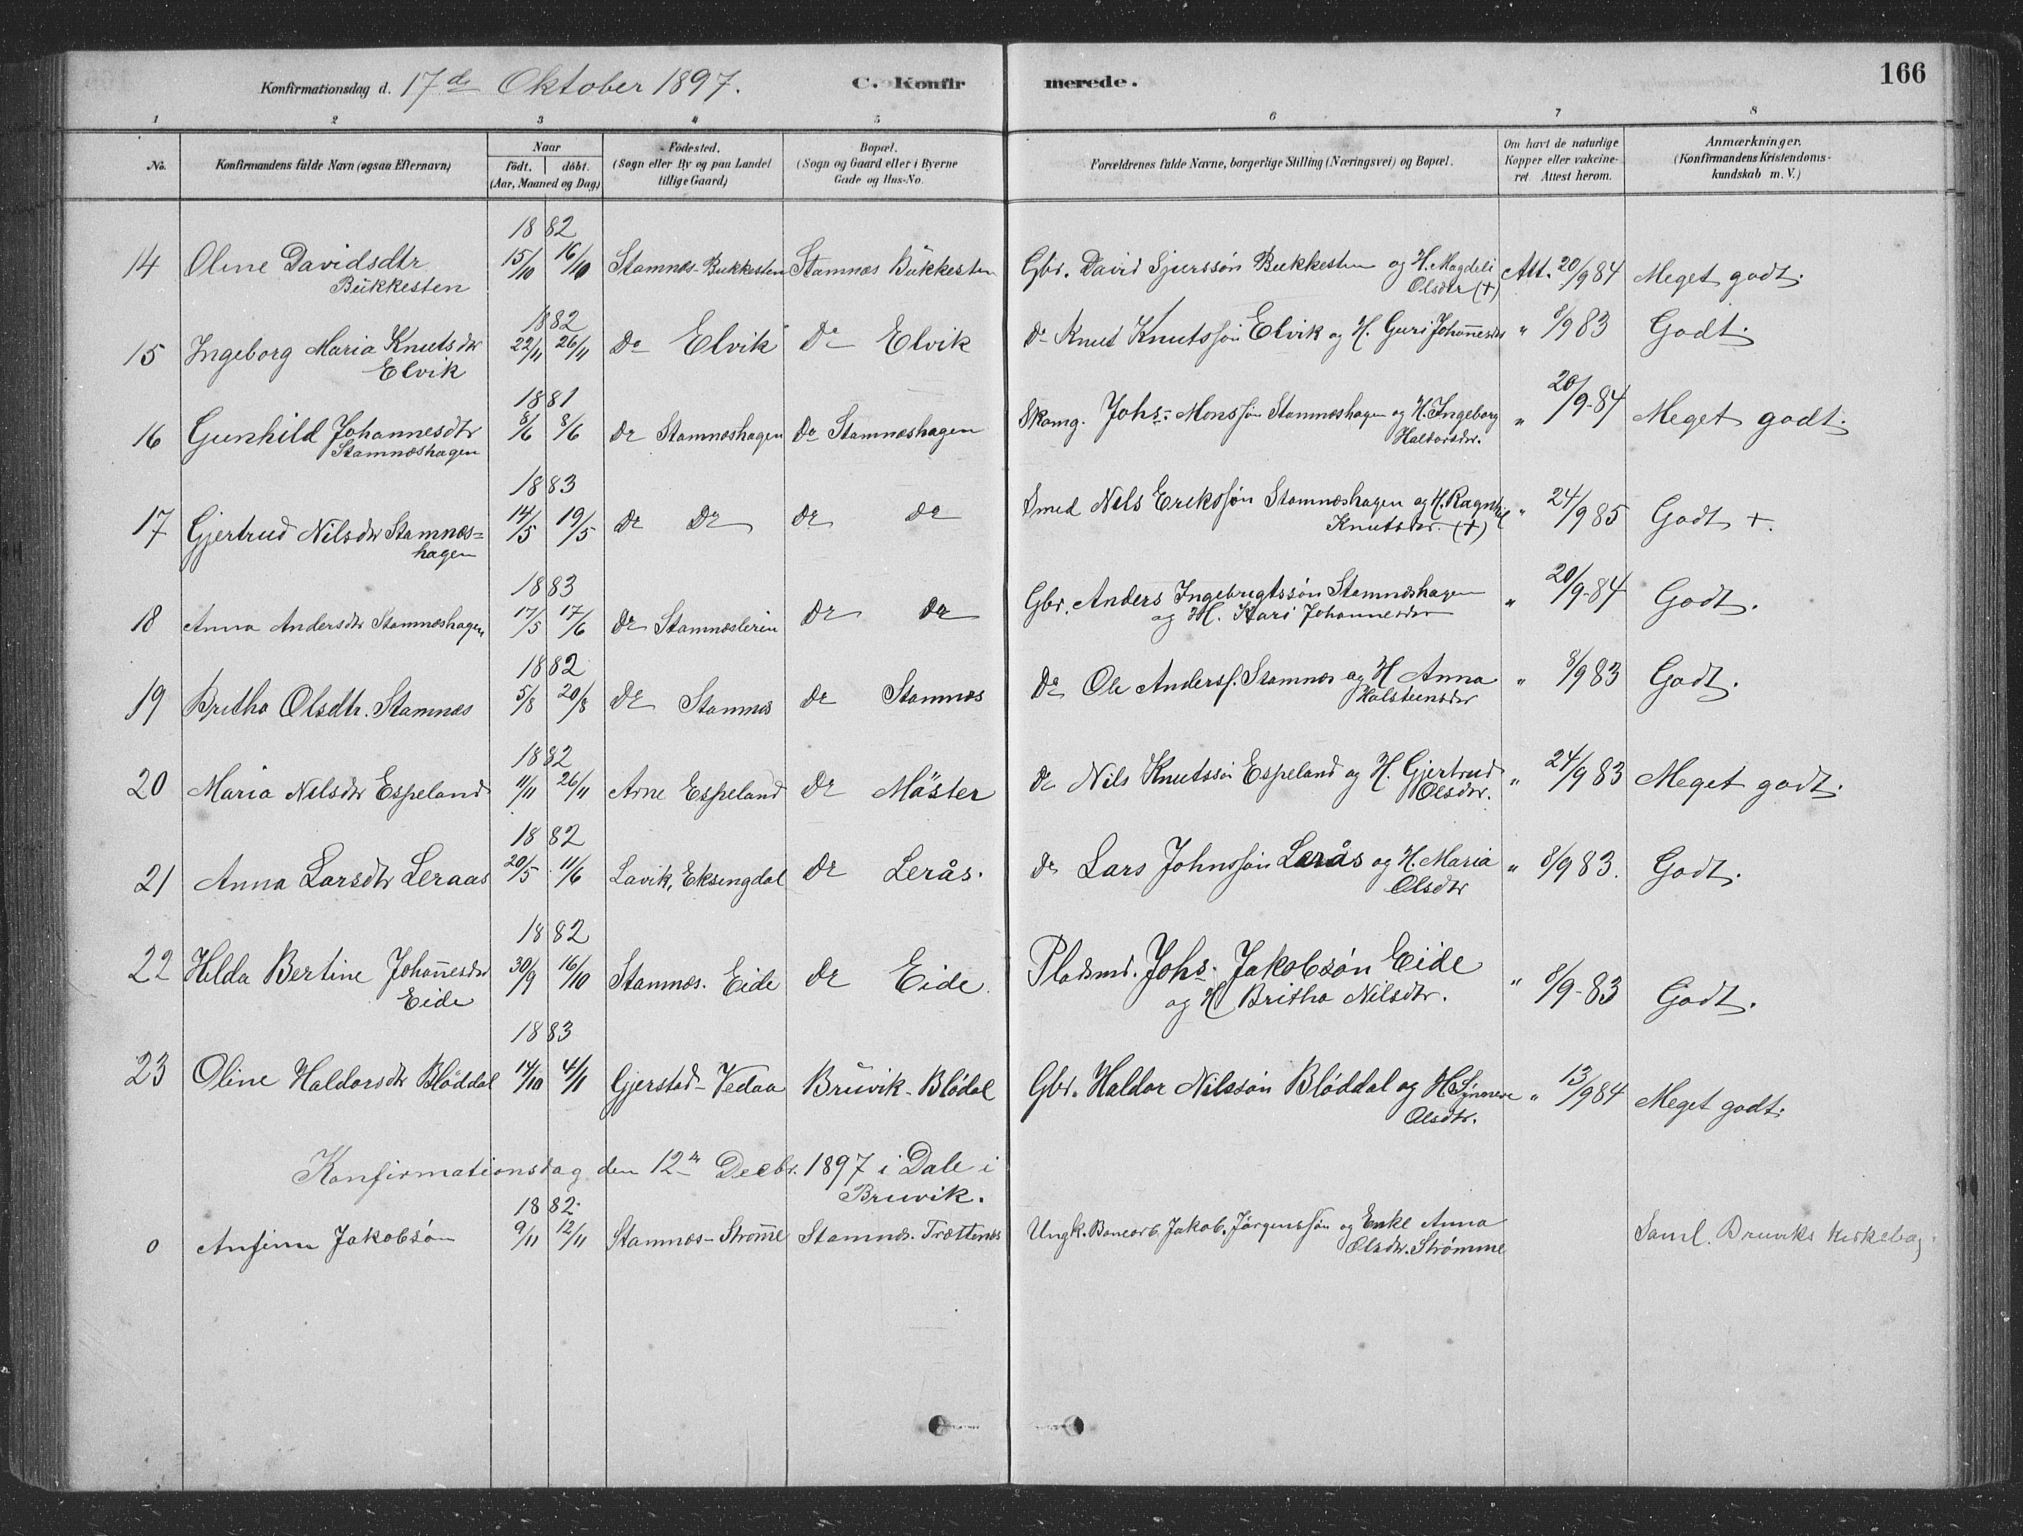 166
Konfirmationsdag d. 17de Oktober 1897. C. Konfirmerede.
1 2 3 4 5 6 7 8
No. Konfirmandens fulde Navn (ogsaa Efternavn) Naar født. døbt. (Aar, Maaned og Dag) Fødested. (Sogn eller By og paa Landet tillige Gaard) Bopæl. (Sogn og Gaard eller i Byerne Gade og Hus-No. Forældrenes fulde Navne, borgerlige Stilling (Næringsvei) og Bopæl. Om havt de naturlige Kopper eller vakcineret Attest herom. Anmærkninger. (Konfirmandens Kristendomskundskab m. V.)
1882
14 Oline Davidsdtr 15/10 16/10 Stamnæs-Bukkesten Stamnæs Bukkesten Gbr. David Sjurssøn Bukkesten og H. Magdeli Att. 20/9 84 Meget godt.
Bukkesten Olsdtr (+)
1882
15 Ingeborg Maria Knutsdtr 22/11 26/11 Do Elvik Do Elvik Do Knut Knutssøn Elvik og H. Guri Johannesdtr " 8/9 83 Godt.
Elvik
1881
16 Gunhild Johannesdtr 8/6 8/6 Do Stamnæshagen Do Stamnæshagen Skomg. Johs. Monssøn Stamnæshagen og H. Ingeborg " 20/9-84 Meget godt.
Stamnæshagen Haldorsdtr.
1883
17 Gjertrud Nilsdtr Stamnæs= 14/5 19/5 Do Do Do Do Smed Nels Erikssøn Stamnæshagen og H. Ragnhil " 24/9 85 Godt +.
hagen Knutsdtr. (+)
1883
18 Anna Andersdtr Stamnæshagen 17/5 17/6 Do Stamnæsleren Do Do Gbr. Anders Ingebrigtssøn Stamnæshagen " 20/9-84 Godt.
og H. Kari Johannesdtr
1882
19 Britha Olsdtr. Stamnæs 5/8 20/8 Do Stamnes Do Stamnæs Do Ole Anderss. Stamnæs og H Anna " 8/9 83 Godt.
Halsteensdtr
1882
20 Maria Nelsdtr Espeland 11/11 26/11 Arne Espeland Do Mäster Do Nils Knutssøn Espeland og H. Gjertrud " 24/9 83 Meget godt.
Olsdtr.
1882
21 Anna Larsdtr Leraas 20/5 11/6 Lavik, Eksingdal Do Lerås. Do Lars Johnssøn Lerås og H. Maria " 8/9 83. Godt.
Olsdtr
1882
22 Hilda Bertine Johannesdtr 30/9 16/10 Stamnæs. Eide Do Eide. Pladsmd. Johs. Jakobsøn Eide " 8/9-83 Godt.
Eide og H Britha Nilsdtr.
1883
23 Oline Haldorsdtr Bløddal 14/10 4/11 Gjerstad-Vedaa Bruvik-Blødal Gbr. Haldor Nilssøn Bløddal og H Synneve " 13/9 84 Meget godt.
Olsdtr.
Konfirmationsdag den 12te Decbr. 1897 i Dale i
Bruvik.
1882
0 Anfinn Jakobsøn 9/11 12/11 Stamnæs-Strømme Stamnæs. Trættenes Ungk. Banearb. Jakob. Jørgenssøn og Enke Anna Saml. Bruviks Kirkebog.
Olsdtr. Strømme